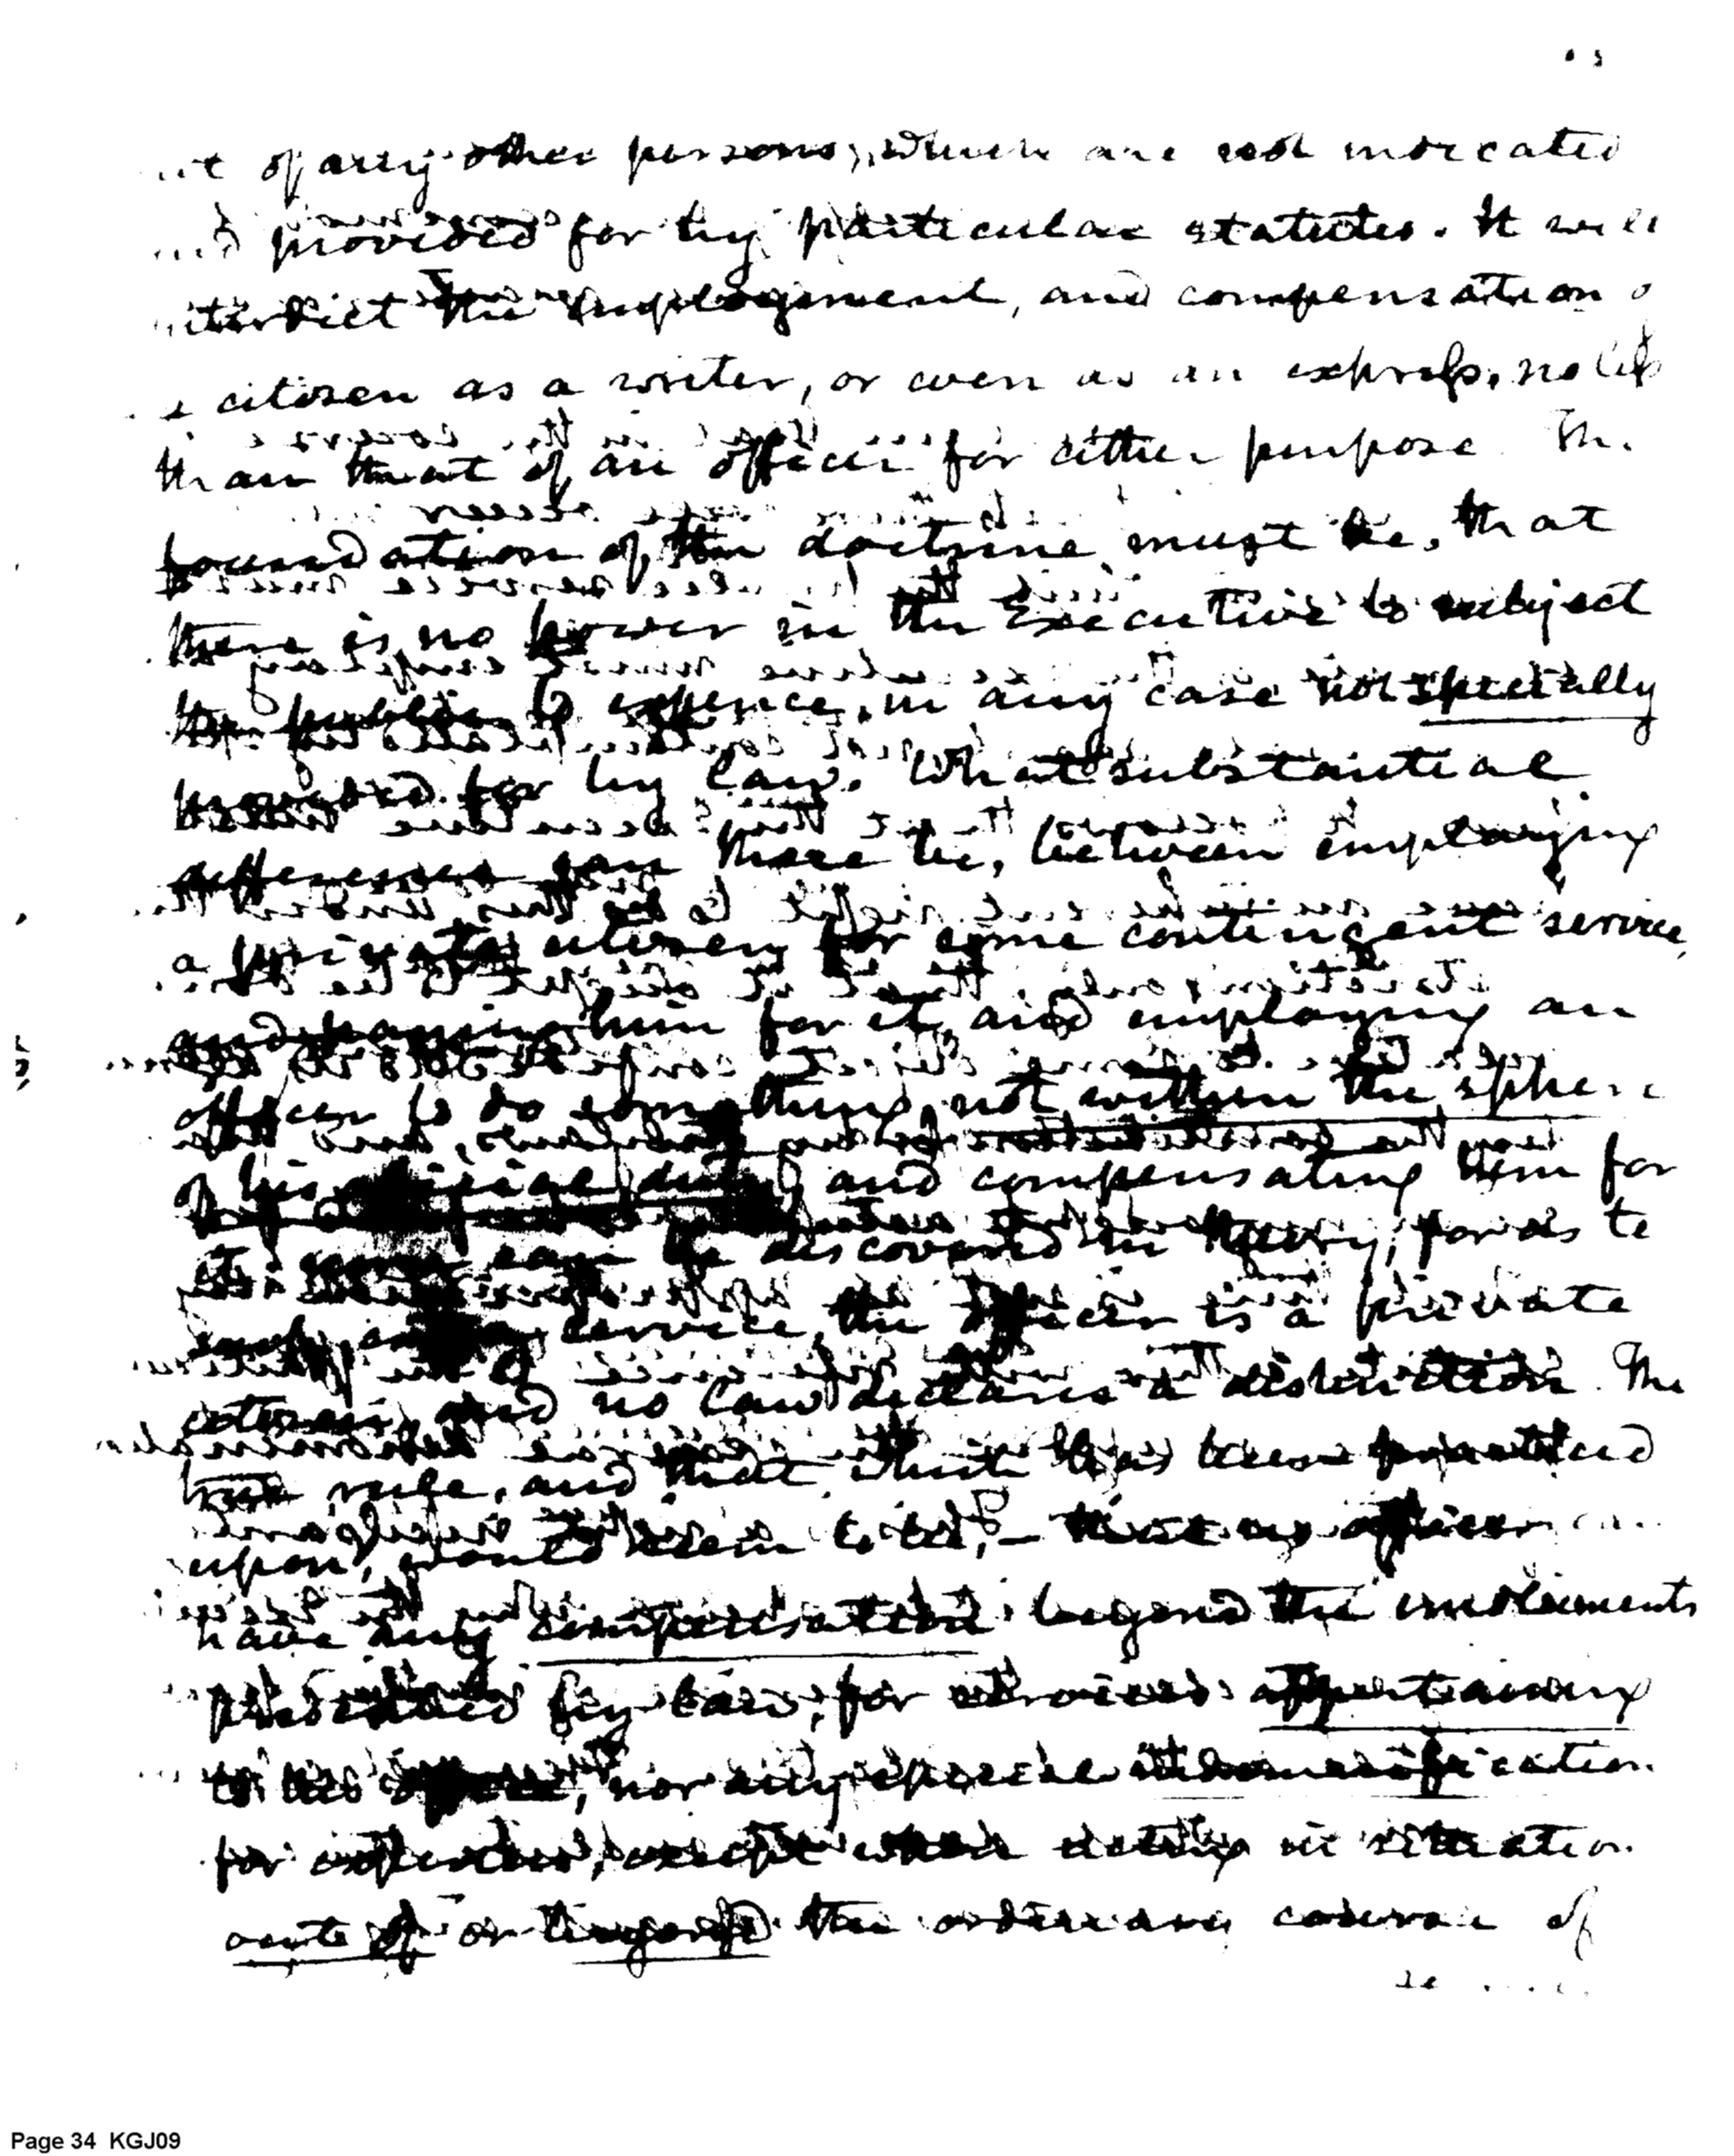 of any other persons, which are not indicated
and provided for by particular statutes. It will
interdict the employment, and compensation o
a citizen as a writer, or even as an express, no less
than that of an officer for either purpose. The
foundation of the doctrine must be, that
there is no power in the Executive to subject
the public to expence, in any case not specially
provided for by law. What substantial
difference can there be, between employing
a private citizen for some contingent service,
and paying him for it, and employing an
officer to do something, not within the sphere
of his official duty, and compensating him for
it; none can be discovered in theory, for as to
such service, the officer is a private
citizen, and no law declares a distinction. The
true rule, and that which has been practised
upon, would seem to be, – that no officer can
have any compensation beyond the emoluments
prescribed by law, for services appertaining
to his office, nor any special indemnification
for expenses, except when acting in situation
out of or beyond the ordinary course of
Page 34 KGJ09